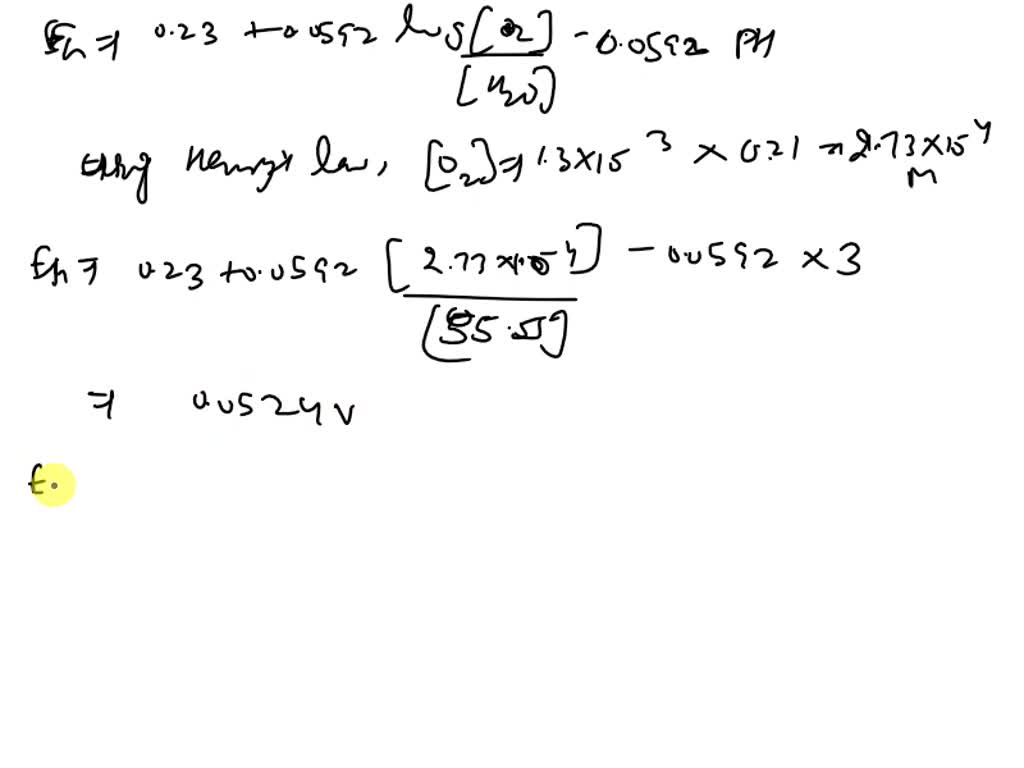 Eh ⇒ 0.23 + 0.0592 log [O2] / [H2O] - 0.0592 PH
using Henry's law, [O2] ⇒ 1.3×10^-3 × 0.21 = 2.73×10^-4 M
Eh ⇒ 0.23 + 0.0592 [2.73×10^-4] / [55.5] - 0.0592 × 3
⇒ 0.0524 V
E